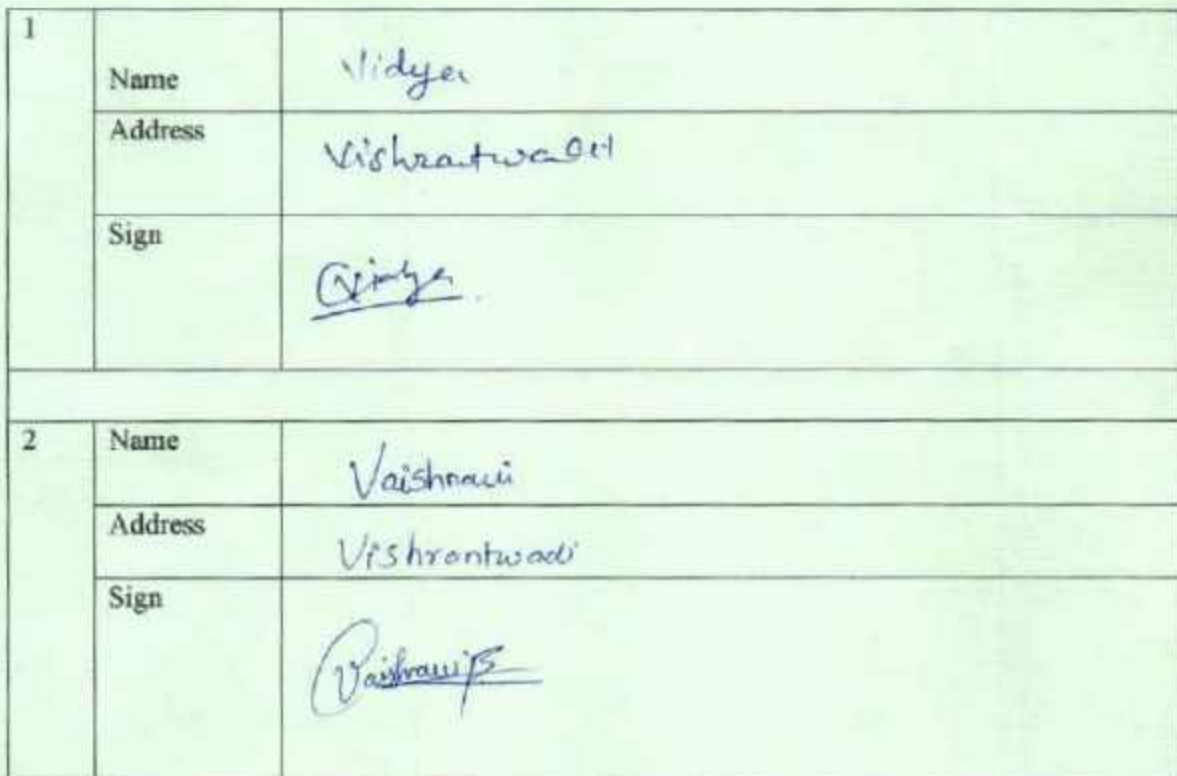 1
Name Vidya
Address Vishrantwadi
Sign Vidya
2
Name Vaishnavi
Address Vishrantwadi
Sign Vaishnavi B